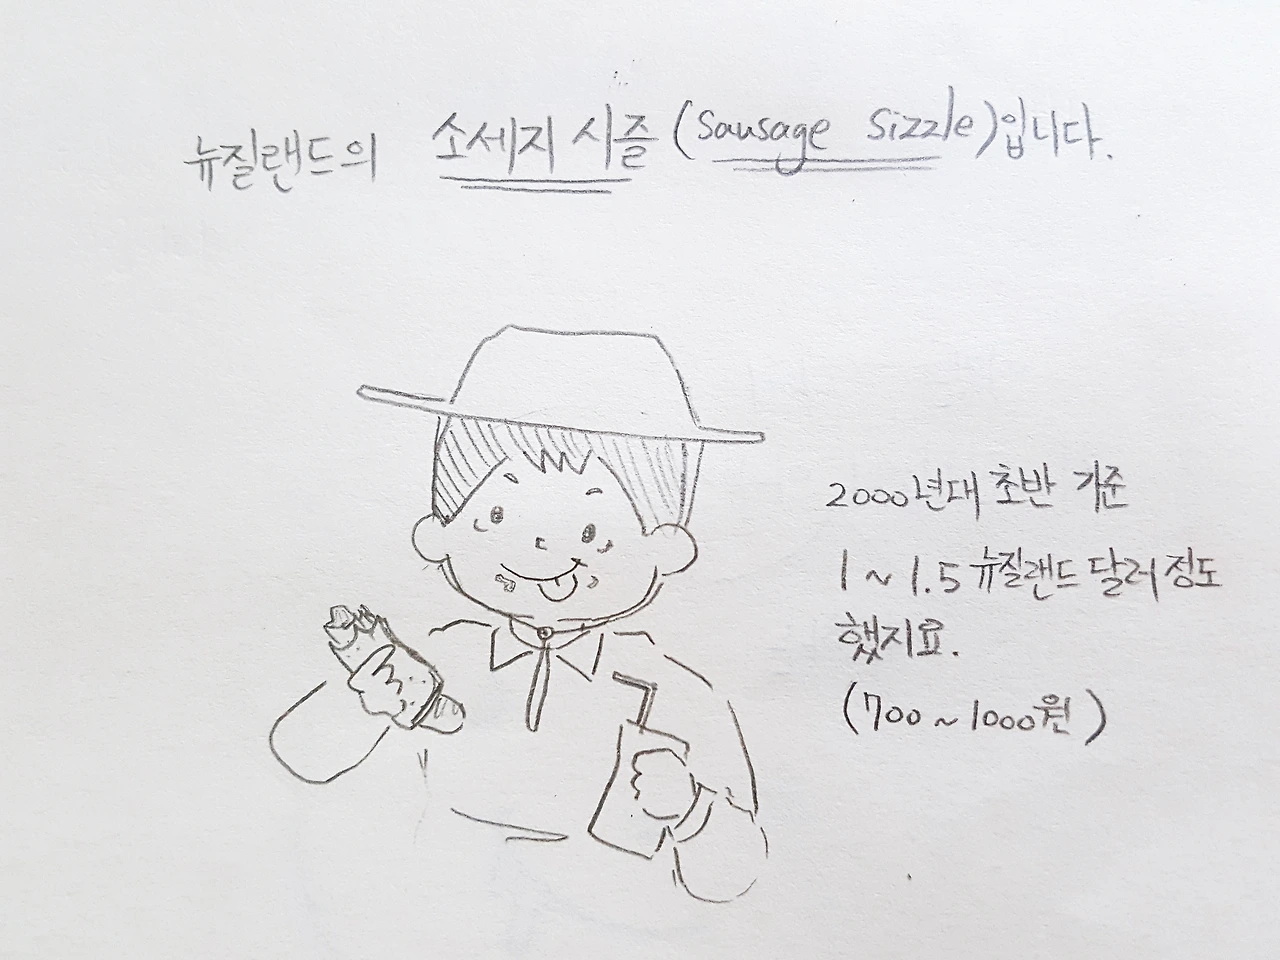 뉴질랜드의 소세지 시즐 (Sausage Sizzle)입니다.
2000년대 초반 기준
1 ~ 1.5 뉴질랜드 달러 정도
했지요.
(700 ~ 1000원)